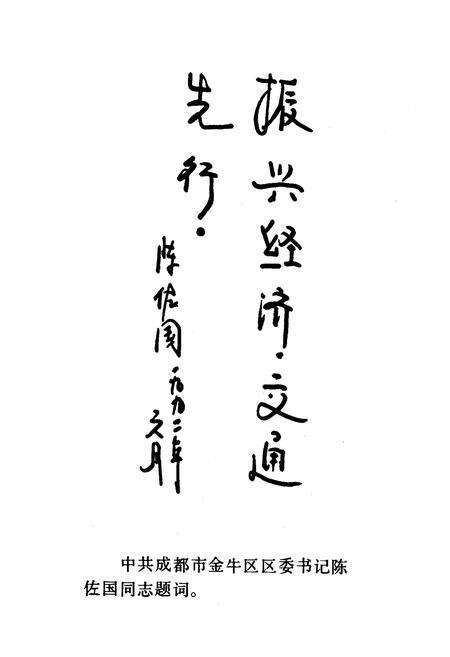 振兴经济·交通
先行·
陈佐国 一九九二年
元月
中共成都市金牛区区委书记陈
佐国同志题词。